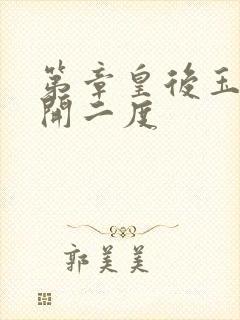 第章皇後玉
開二度
郭美美